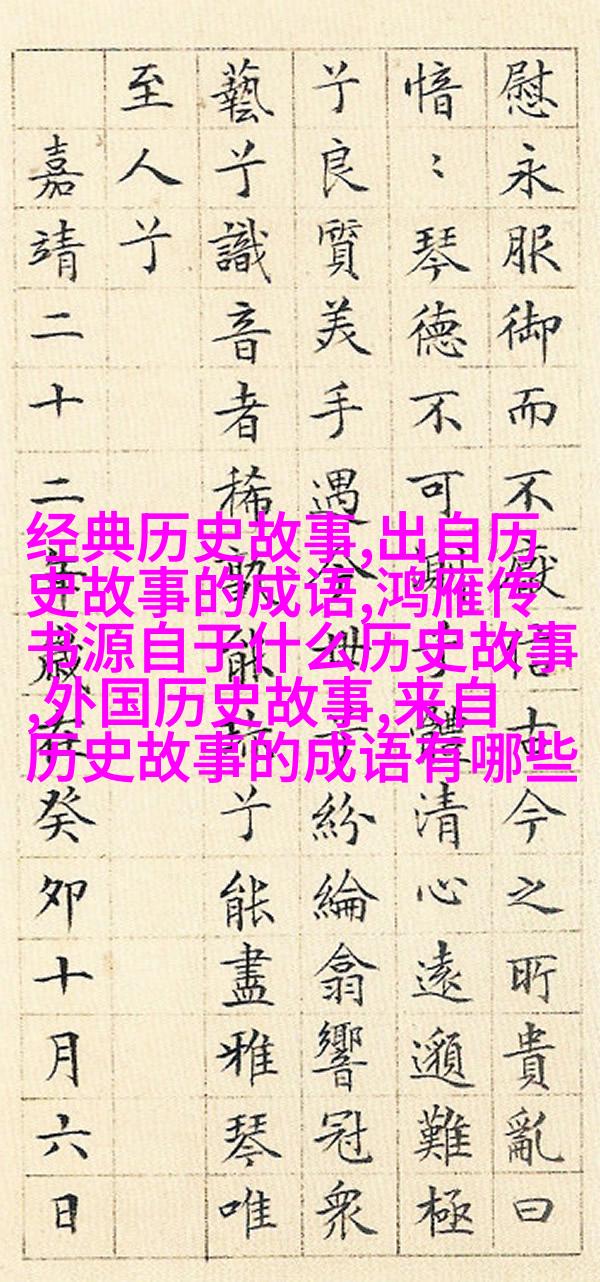 慰永服御而不厭信古今之所貴亂曰
愔〻琴德不可測兮體清心遠邈難極
兮良質美手遇今世兮紛綸翕響冠衆
藝兮識音者稀孰能珍兮能盡雅琴唯
至人兮
嘉靖二十二年歲在癸卯十月六日
经典历史故事,出自历
史故事的成语,鸿雁传
书源自于什么历史故事
,外国历史故事,来自
历史故事的成语有哪些